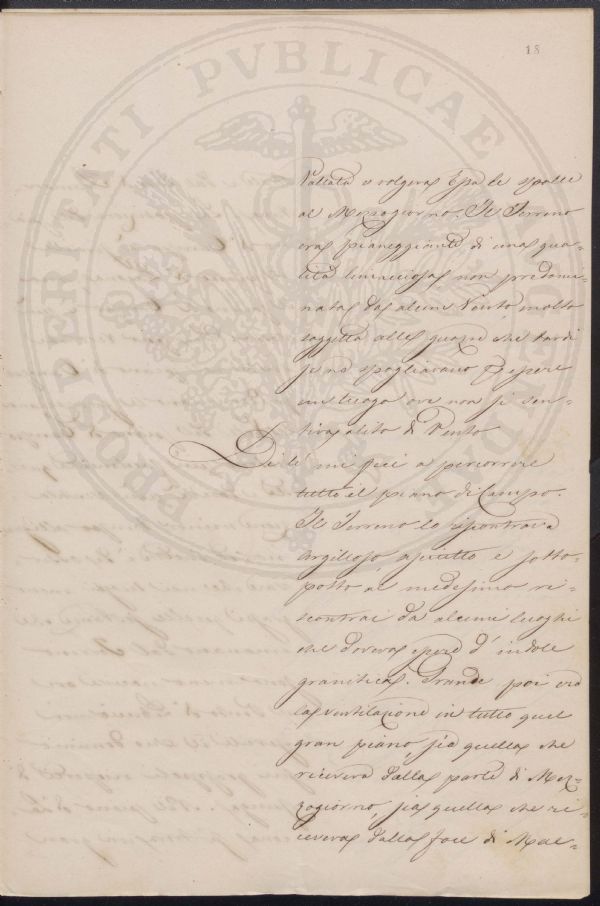 18
PROSPERITATI PVBLICAE
Vallata e volgeva Essa le spalle
al Mezzogiorno. Il Terreno
era pianeggiante di una qua-
lità limacciosa non predomi-
nata da alcun Vento molto
soggetta alle guazze che tardi
se ne spogliavano Essere
un luogo ove non si sen-
tiva alito di Vento
Di lì mi feci a percorrere
tutto il piano di Campo.
Il Terreno lo riscontrava
argilloso asciutto e sotto-
posto al medesimo ri-
scontrai da alcuni luoghi
che doveva essere d' indole
granitica. Grande poi era
la ventilazione in tutto quel
gran piano, sia quella che
riceveva dalla parte di Mez-
zogiorno, sia quella che ri-
ceveva dalla foce di Mae-